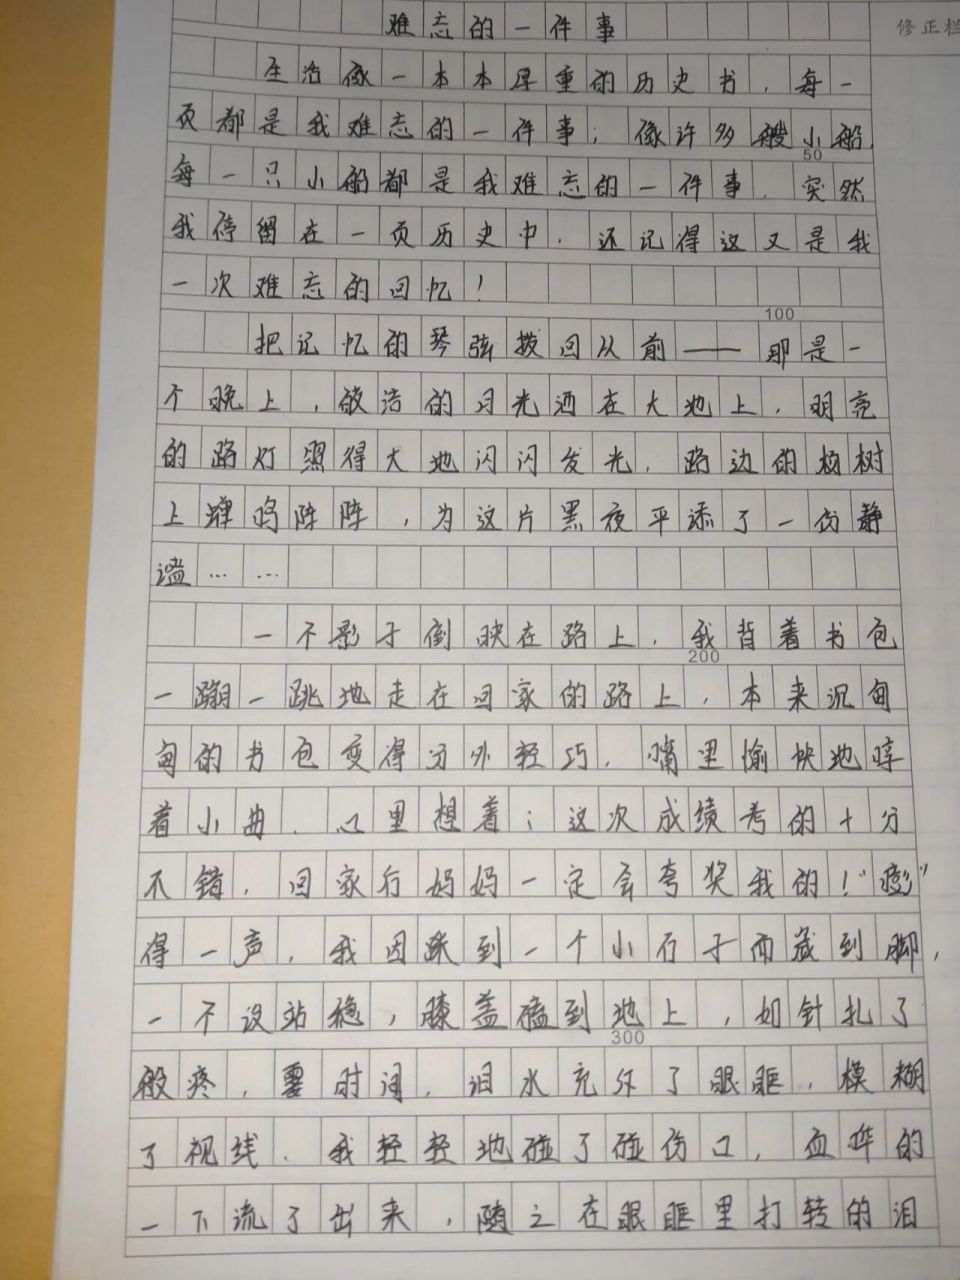 难忘的一件事
修正栏
生活像一本本厚重的历史书，每一
页都是我难忘的一件事；像许多艘小船
50
每一只小船都是我难忘的一件事．突然
我停留在一页历史中．还记得这又是我
一次难忘的回忆！
100
把记忆的琴弦拨回从前——那是一
个晚上，皎洁的月光洒在大地上，明亮
的路灯照得大地闪闪发光．路边的杨树
上蝉鸣阵阵，为这片黑夜平添了一份静
谧……
一个影子倒映在路上．我背着书包
200
一蹦一跳地走在回家的路上，本来沉甸
甸的书包变得分外轻巧．嘴里愉快地哼
着小曲．心里想着：这次成绩考的十分
不错．回家后妈妈一定会夸奖我的！“嘭”
得一声．我因踩到一个小石子而崴到脚，
一不没站稳，膝盖磕到地上，如针扎了
300
般疼．霎时间．泪水充斥了眼眶，模糊
了视线．我轻轻地碰了碰伤口，血哗的
一下流了出来，随之在眼眶里打转的泪